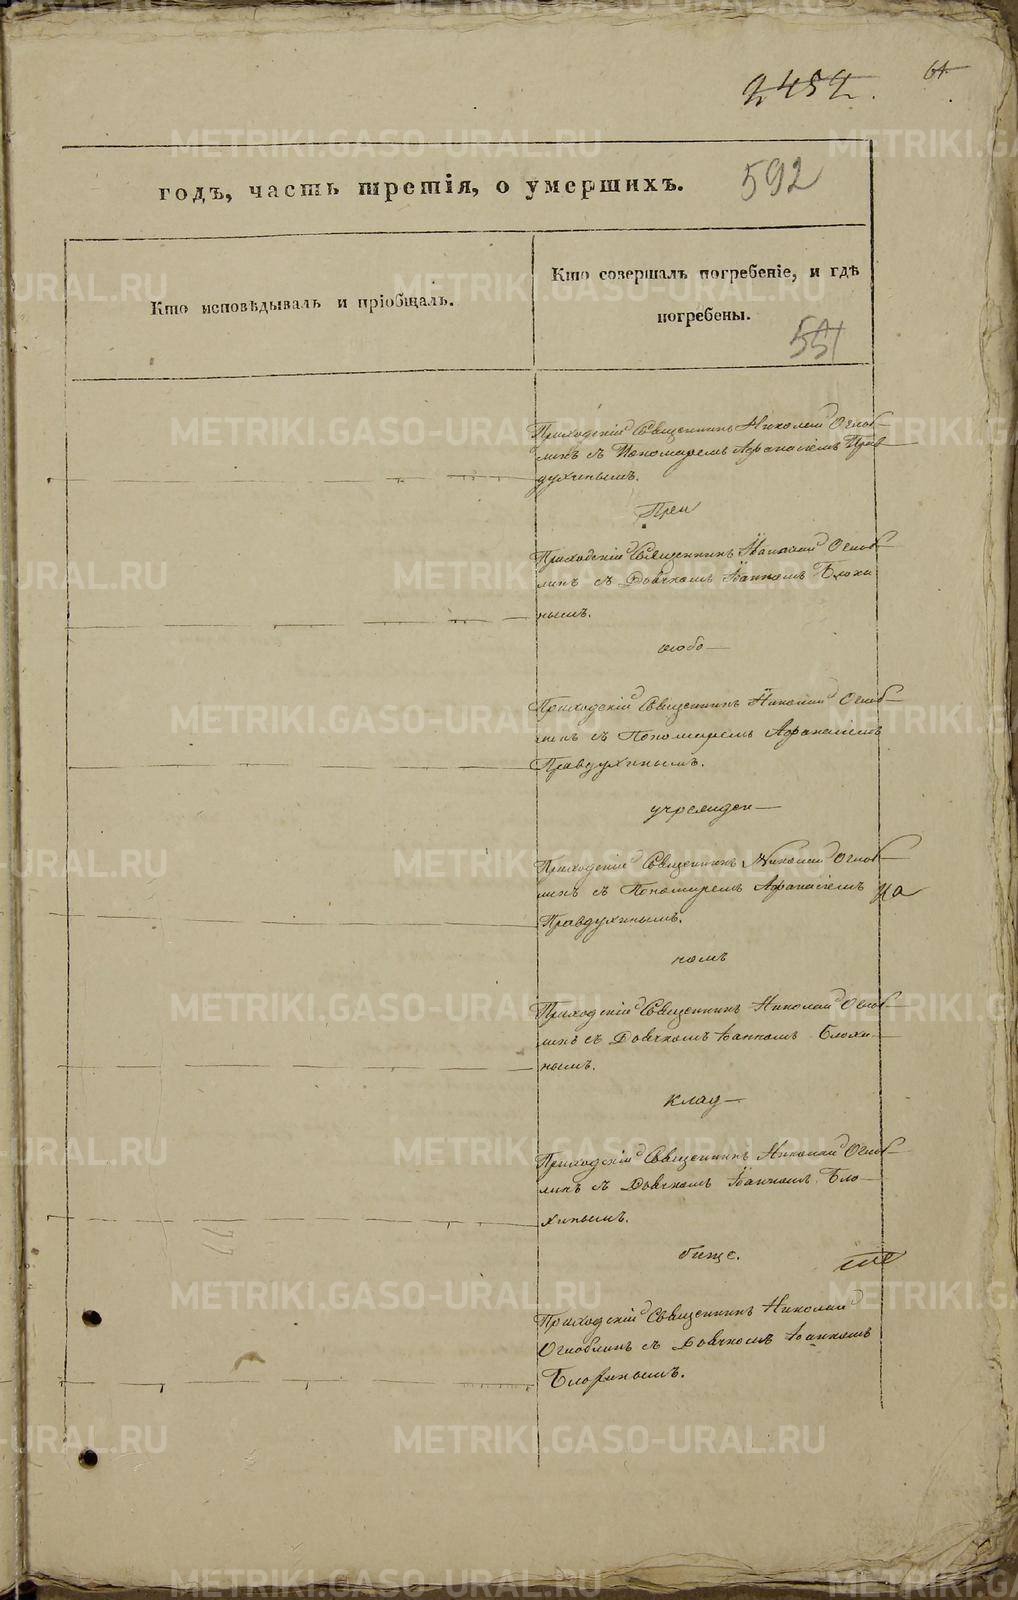 2452.
61
годъ, часть третія, о умершихъ.
592
Кто исповѣдывалъ и пріобщалъ.
Кто совершалъ погребеніе, и гдѣ
погребены.
551
Приходскій Священникъ Николай Оглоб-
линъ съ Пономаремъ Афанасіемъ Прав
духинымъ.
При
Приходскій Священникъ Николай Оглоб-
линъ съ Дьячкомъ Іоанномъ Блохи
нымъ.
особо
Приходскій Священникъ Николай Оглоб-
линъ съ Пономаремъ Афанасіемъ
Правдухинымъ.
учрежден
Приходскій Священникъ Николай Оглоб-
линъ съ Пономаремъ Афанасіемъ
Правдухинымъ.
на
номъ
Приходскій Священникъ Николай Оглоб-
линъ съ Дьячкомъ Іоанномъ Блохи-
нымъ.
клад-
Приходскій Священникъ Николай Оглоб-
линъ съ Дьячкомъ Іоанномъ Бло-
хинымъ.
бище.
Приходскій Священникъ Николай
Оглоблинъ съ Дьячкомъ Іоанномъ
Блохинымъ.
METRIKI.GASO-URAL.RU